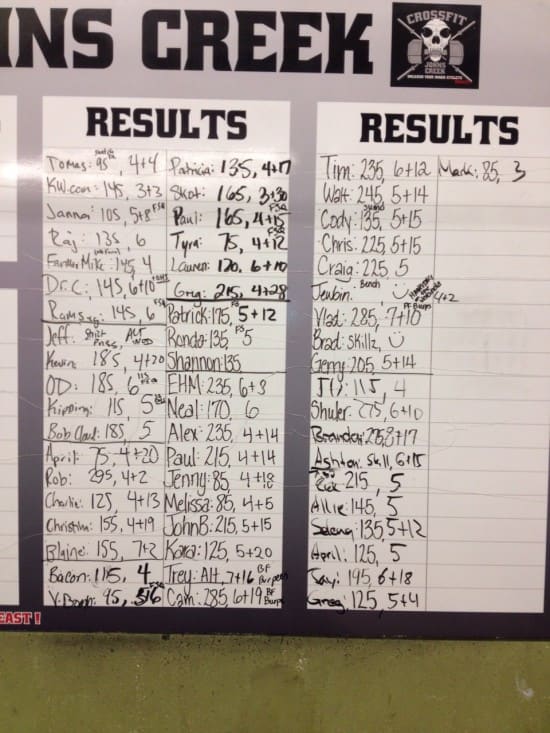 NS CREEK
CROSSFIT
JOHNS
CREEK
RESULTS
Tomas: 95, 4+4
KW.com: 145, 3+3
Janna: 105, 5+8
Raj: 135, 6
Farmer Mike: 145, 4
Dr. C: 145, 6+10
Ramsgg: 145, 6
Jeff: Shirt Press, ALT WOD
Kevin: 185, 4+20
OD: 185, 6
Kipping: 115, 5
Bob Claud: 185, 5
April: 75, 4+20
Rob: 295, 4+2
Charlie: 125, 4+13
Christina: 155, 4+19
Blaine: 155, 7+2
Bacon: 115, 4
95,
Patricia: 135, 4+17
Skot: 165, 3+30
Paul: 165, 4+15
FSQ
Tyra: 75, 4+12
FSQ
Lauren: 120, 6+10
Greg: 215, 4+28
Patrick: 175, 5+12
Ronda: 135, 5
Shannon: 135
EHM: 235, 6+3
Neal: 170, 6
Alex: 235, 4+14
Paul: 215, 4+14
Jenny: 85, 4+18
Melissa: 85, 4+5
John B: 215, 5+15
Kara: 125, 5+20
Trey: Alt, 7+16 BF Burpees
Cam: 285, 6+19 BF Burps
RESULTS
Tim: 235, 6+12
Walt: 245, 5+14
Cody: 135, 5+15
Chris: 225, 5+15
Craig: 225, 5
Jewbin: Bench, 4+2
Vlad: 285, 7+10 BF Burps
Brad: skillz,
Gerry: 205, 5+14
JD: 115, 4
Shuler: 275, 6+10
Brandon:
Ashton: skill, 6+15
215, 5
Allie: 145, 5
Selena: 135, 5+12
April: 125, 5
Jay: 195, 6+18
Greg: 125, 5+4
Mark: 85, 3
EAST!